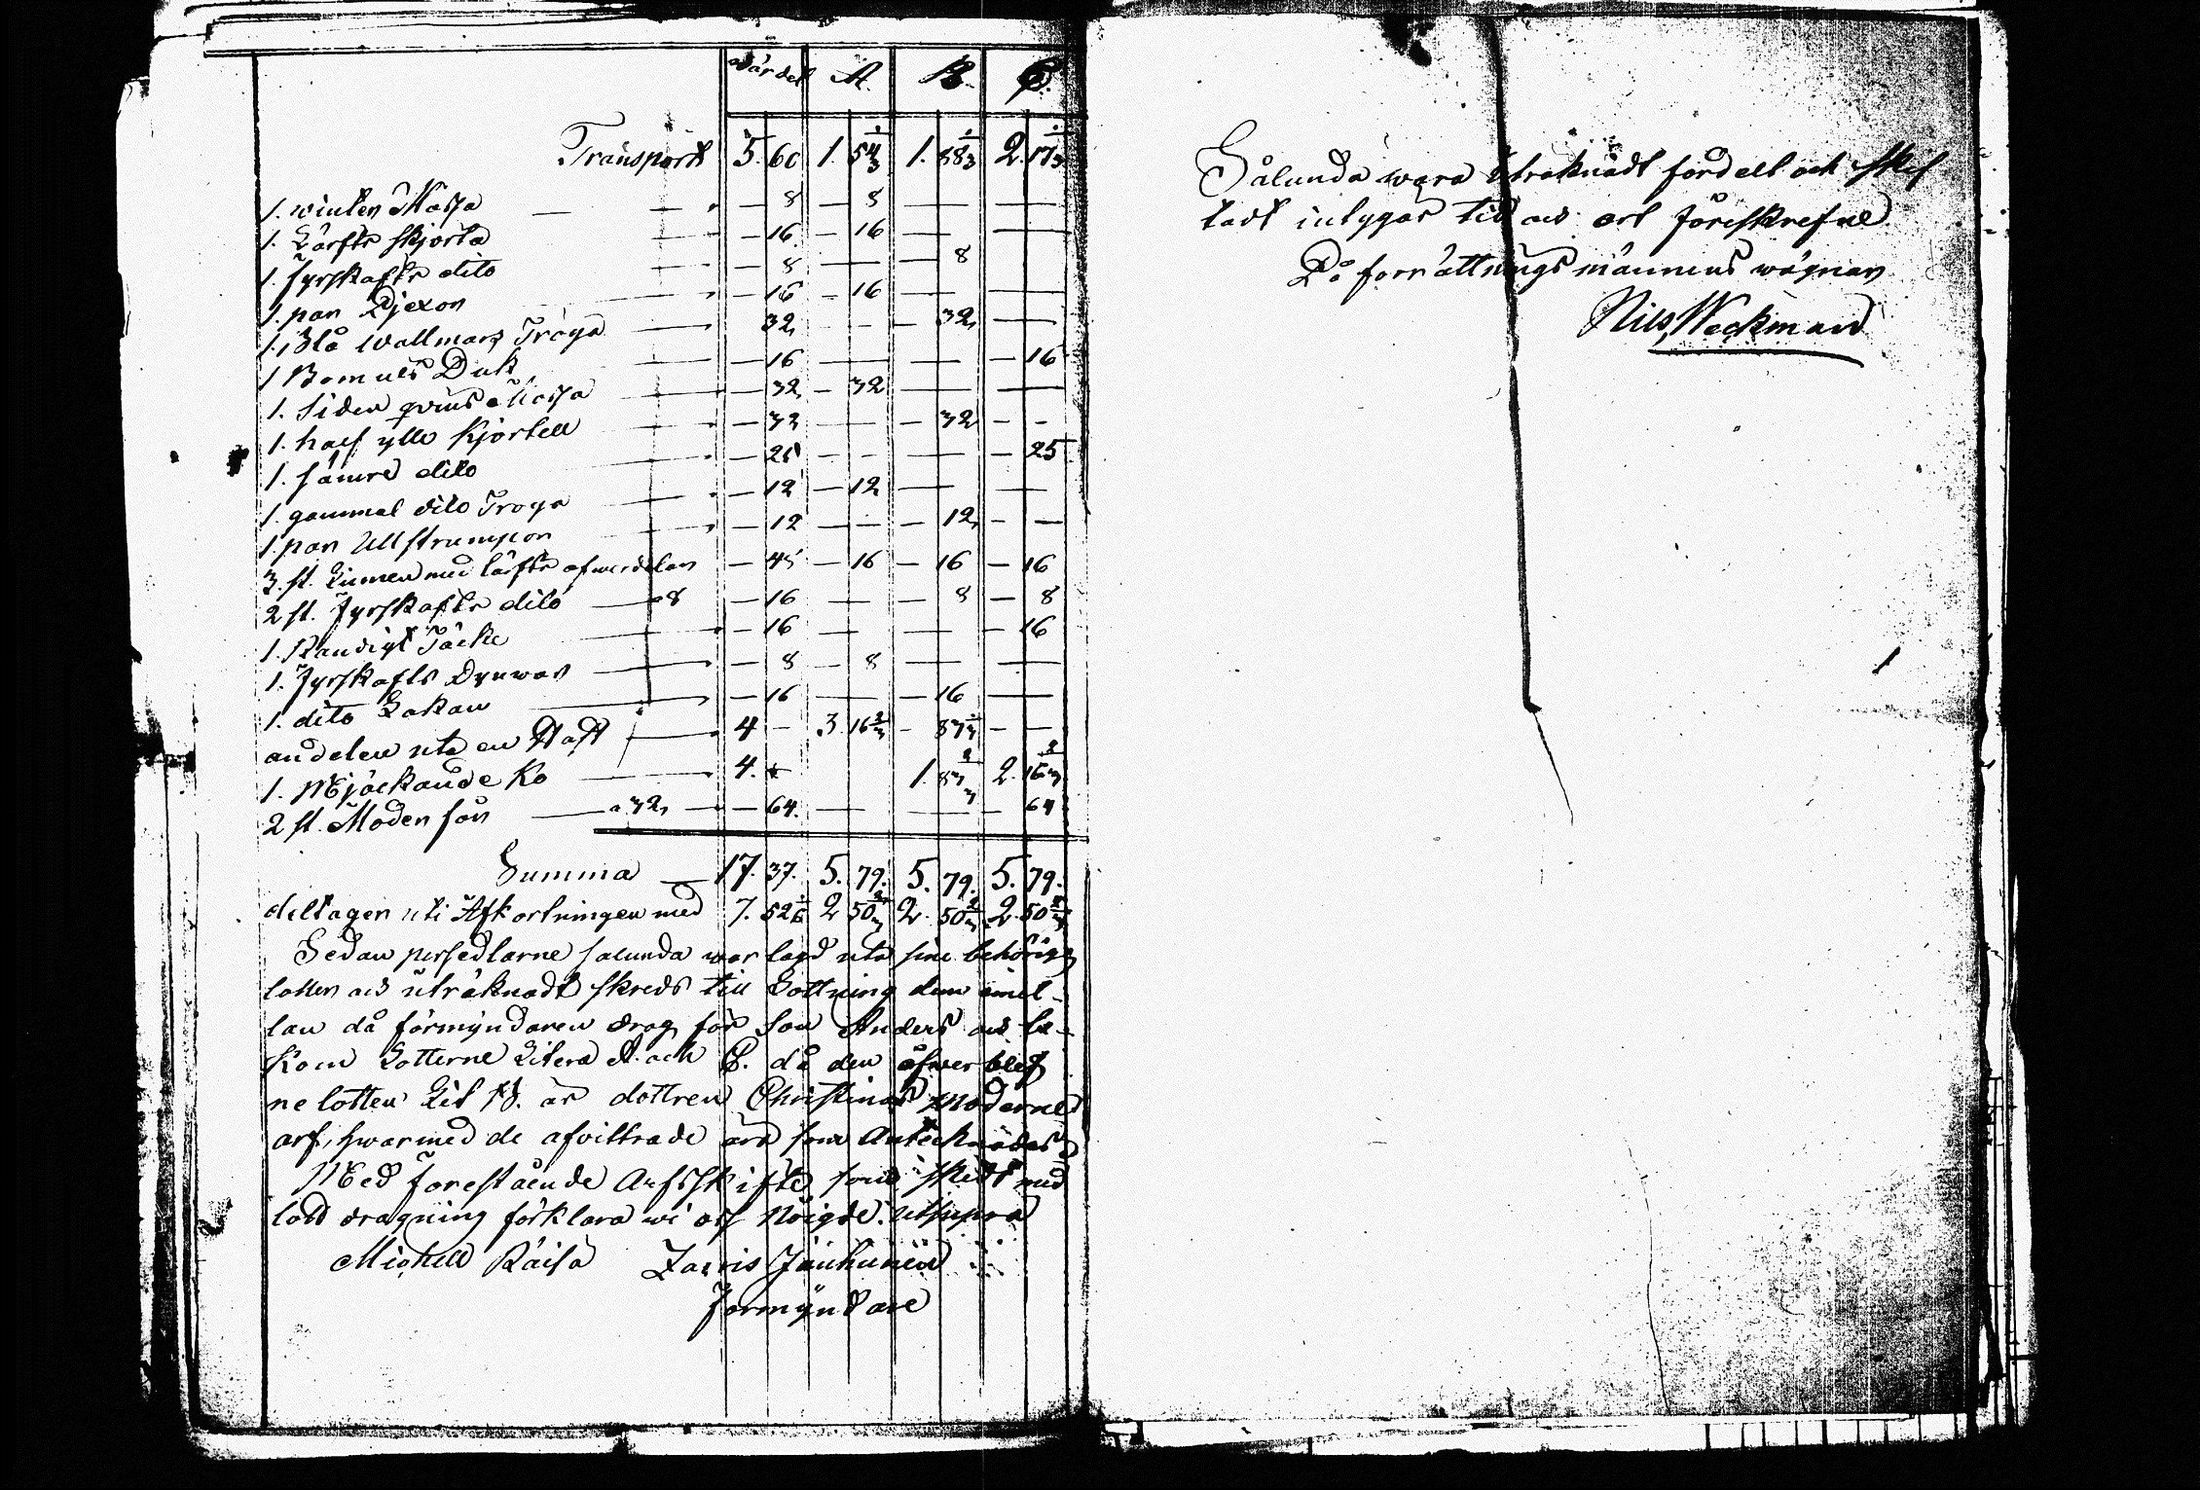 Värdet A. B. C.
Transport 5. 60 1. 54 1/3 1. 88 1/3 2. 17 1/3
1. winter Mössa — 8 — 8 — —
1. Lärfts skjorta — 16 — 16 — —
1. fyrskafts dito — 8 — — 8
1. par Byxor — 16 — 16 — —
1. Blå wallmars Tröya 32 - - — 32 —
1 Bomuls Duk — 16 — — — 16
1. siden qvins Mössa — 32 — 32 — —
1. half ylle Kjortell — 32 — — 32 - -
1. sämre dito — 25 - - — — 25
1. gammal dito Tröya — 12 — 12 — —
1. par Ullstrumpor — 12 — - — 12 - —
3. st. Linnen med lärfts öfwerdelar — 48 — 16 — 16 — 16
2 st. fyrskafts dito — 8 — 16 — — 8 — 8
1. Randigt Täcke — 16 — — — 16
1. fyrskafts Dynwar — 8 — 8 — —
1. dito Lakan — 16 — — 16 —
andelen uti en Häst 4 - 3. 16 2/3 - 83 1/3 - —
1. Mjölkande Ko 4. 1. 83 2/3 2. 16 2/3
2 st. Moder får — a 32 — 64. — — 64
Summa — 17. 37. 5. 79. 5. 79. 5. 79.
deltager uti Afkortningen med 7. 52 2 50 2/3 2. 50 2/3 2. 50 2/3
Sedan persedlarne sålunda war lagd uti sine behörige
lotter och uträknadt skreds till Lottning dem imel-
lan då förmyndaren drog för son Anders och be-
kom Lotterne Litera A. och C. då den öfwer blef
ne lotten Lit B. är dottren Christinas moderne
arf, hwarmed de afvittrade äro som Antecknades
Med förestående Arfsskifte som skedt med
lott dragning förklara wi oss nöigde. utsupra
Michell Räisä Zarris Jäuhunen
förmyndare
Sålunda wara uträknadt fördelt och skif
tadt intygas till år och ort föreskrefne
På förrättningsmännens wägnar
Nils Weckman